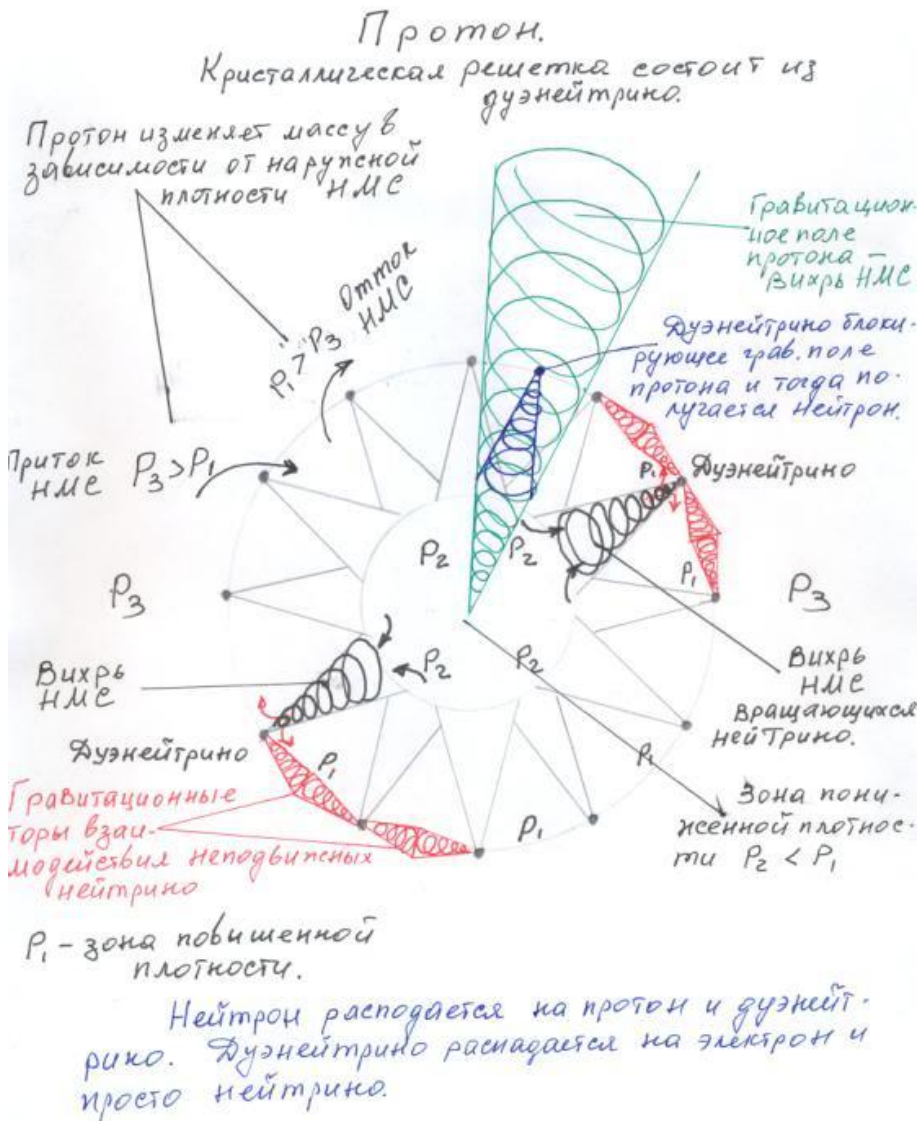 Протон.
Кристаллическая решетка состоит из
дуэнейтрино.
Протон изменяет массу в
зависимости от нарупсной
плотности НМС
Отток
НМС
P₁ > P₃
Приток
НМС
P₃ > P₁
Гравитацион-
ное поле
протона –
Вихрь НМС
Дуэнейтрино блоки-
рующее грав. поле
протона и тогда по-
лучается нейтрон.
P₁
Дуэнейтрино
P₂
P₂
P₁
P₃
P₃
Вихрь
НМС
P₂
P₂
Вихрь
НМС
вращающихся
нейтрино.
Дуэнейтрино
P₁
P₁
Гравитационные
торы взаи-
модействия неподвижных
нейтрино
P₁
Зона пони-
женной плотнос-
ти P₂ < P₁
P₁ – зона повишенной
плотности.
Нейтрон расподается на протон и дуэнейт-
рино. Дуэнейтрино распадается на электрон и
просто нейтрино.